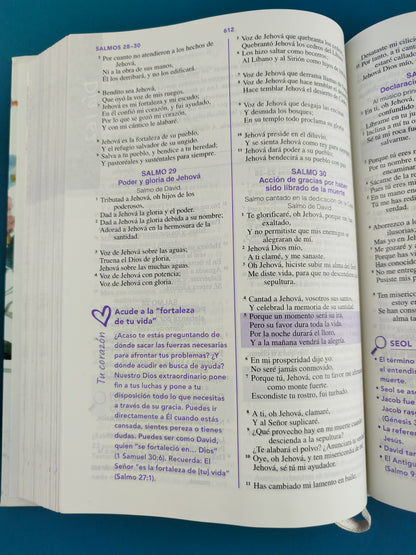 SALMOS 28–30
612
5 Por cuanto no atendieron a los hechos de
Jehová,
Ni a la obra de sus manos,
Él los derribará, y no los edificará.
6 Bendito sea Jehová,
Que oyó la voz de mis ruegos.
7 Jehová es mi fortaleza y mi escudo;
En él confió mi corazón, y fui ayudado,
Por lo que se gozó mi corazón,
Y con mi cántico le alabaré.
8 Jehová es la fortaleza de su pueblo,
Y el refugio salvador de su ungido.
9 Salva a tu pueblo, y bendice a tu heredad;
Y pastoréales y susténtales para siempre.
SALMO 29
Poder y gloria de Jehová
Salmo de David.
1 Tributad a Jehová, oh hijos de los
poderosos,
Dad a Jehová la gloria y el poder.
2 Dad a Jehová la gloria debida a su nombre;
Adorad a Jehová en la hermosura de la
santidad.
3 Voz de Jehová sobre las aguas;
Truena el Dios de gloria,
Jehová sobre las muchas aguas.
4 Voz de Jehová con potencia;
Voz de Jehová con gloria.
Tu corazón
Acude a la "fortaleza
de tu vida"
¿Acaso te estás preguntando de
dónde sacar las fuerzas necesarias
para afrontar tus problemas? ¿Y
dónde acudir en busca de ayuda?
Nuestro Dios extraordinario pone
fin a tus luchas y pone a tu
disposición todo lo que necesitas
a través de su gracia. Puedes ir
directamente a Él cuando estás
cansada, sientes pereza o tienes
dudas. Puedes ser como David,
quien "se fortaleció en... Dios"
(1 Samuel 30:6). Recuerda: El
Señor "es la fortaleza de [tu] vida"
(Salmo 27:1).
5 Voz de Jehová que quebranta los cedros;
Quebrantó Jehová los cedros del
6 Los hizo saltar como becerros;
Al Líbano y al Sirión como hijos de
7 Voz de Jehová que derrama llamas de
8 Voz de Jehová que hace temblar el desierto;
Hace temblar Jehová el desierto de
9 Voz de Jehová que desgaja las encinas,
Y desnuda los bosques;
En su templo todo proclama su gloria.
10 Jehová preside en el diluvio,
Y se sienta Jehová como rey para siempre.
11 Jehová dará poder a su pueblo;
Jehová bendecirá a su pueblo con paz.
SALMO 30
Acción de gracias por haber
sido librado de la muerte
Salmo cantado en la dedicación de la Casa.
Salmo de David.
1 Te glorificaré, oh Jehová, porque me has
exaltado,
Y no permitiste que mis enemigos se
alegraran de mí.
2 Jehová Dios mío,
A ti clamé, y me sanaste.
3 Oh Jehová, hiciste subir mi alma del Seol;
Me diste vida, para que no descendiese a la
sepultura.
4 Cantad a Jehová, vosotros sus santos,
Y celebrad la memoria de su santidad.
5 Porque un momento será su ira,
Pero su favor dura toda la vida.
Por la noche durará el lloro,
Y a la mañana vendrá la alegría.
6 En mi prosperidad dije yo:
No seré jamás conmovido,
7 Porque tú, Jehová, con tu favor me afirmaste
como monte fuerte.
Escondiste tu rostro, fui turbado.
8 A ti, oh Jehová, clamaré,
Y al Señor suplicaré.
9 ¿Qué provecho hay en mi muerte cuando
descienda a la sepultura?
¿Te alabará el polvo? ¿Anunciará tu verdad?
10 Oye, oh Jehová, y ten misericordia de mí;
Jehová, sé tú mi ayudador.
11 Has cambiado mi lamento en baile;
Desataste mi cilicio
Jehová Dios mío,
Declaración
Al músico principal
SEOL
El término
el entendimiento
muerte.
Seol se
Jacob fue
Jacob
(Génesis
La referencia
Jesús.
David
El Antiguo